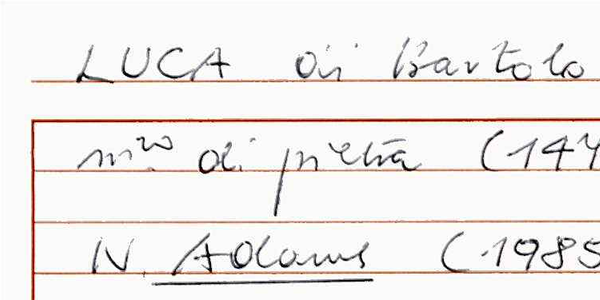 LUCA di Bartolo
m.ro di pietra (147
N. Adams (1985